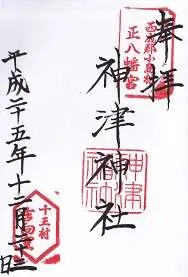 奉拝
西成郡小島村
正八幡宮
神津神社
神津神社
十三村
平成二十五年十二月二十三日